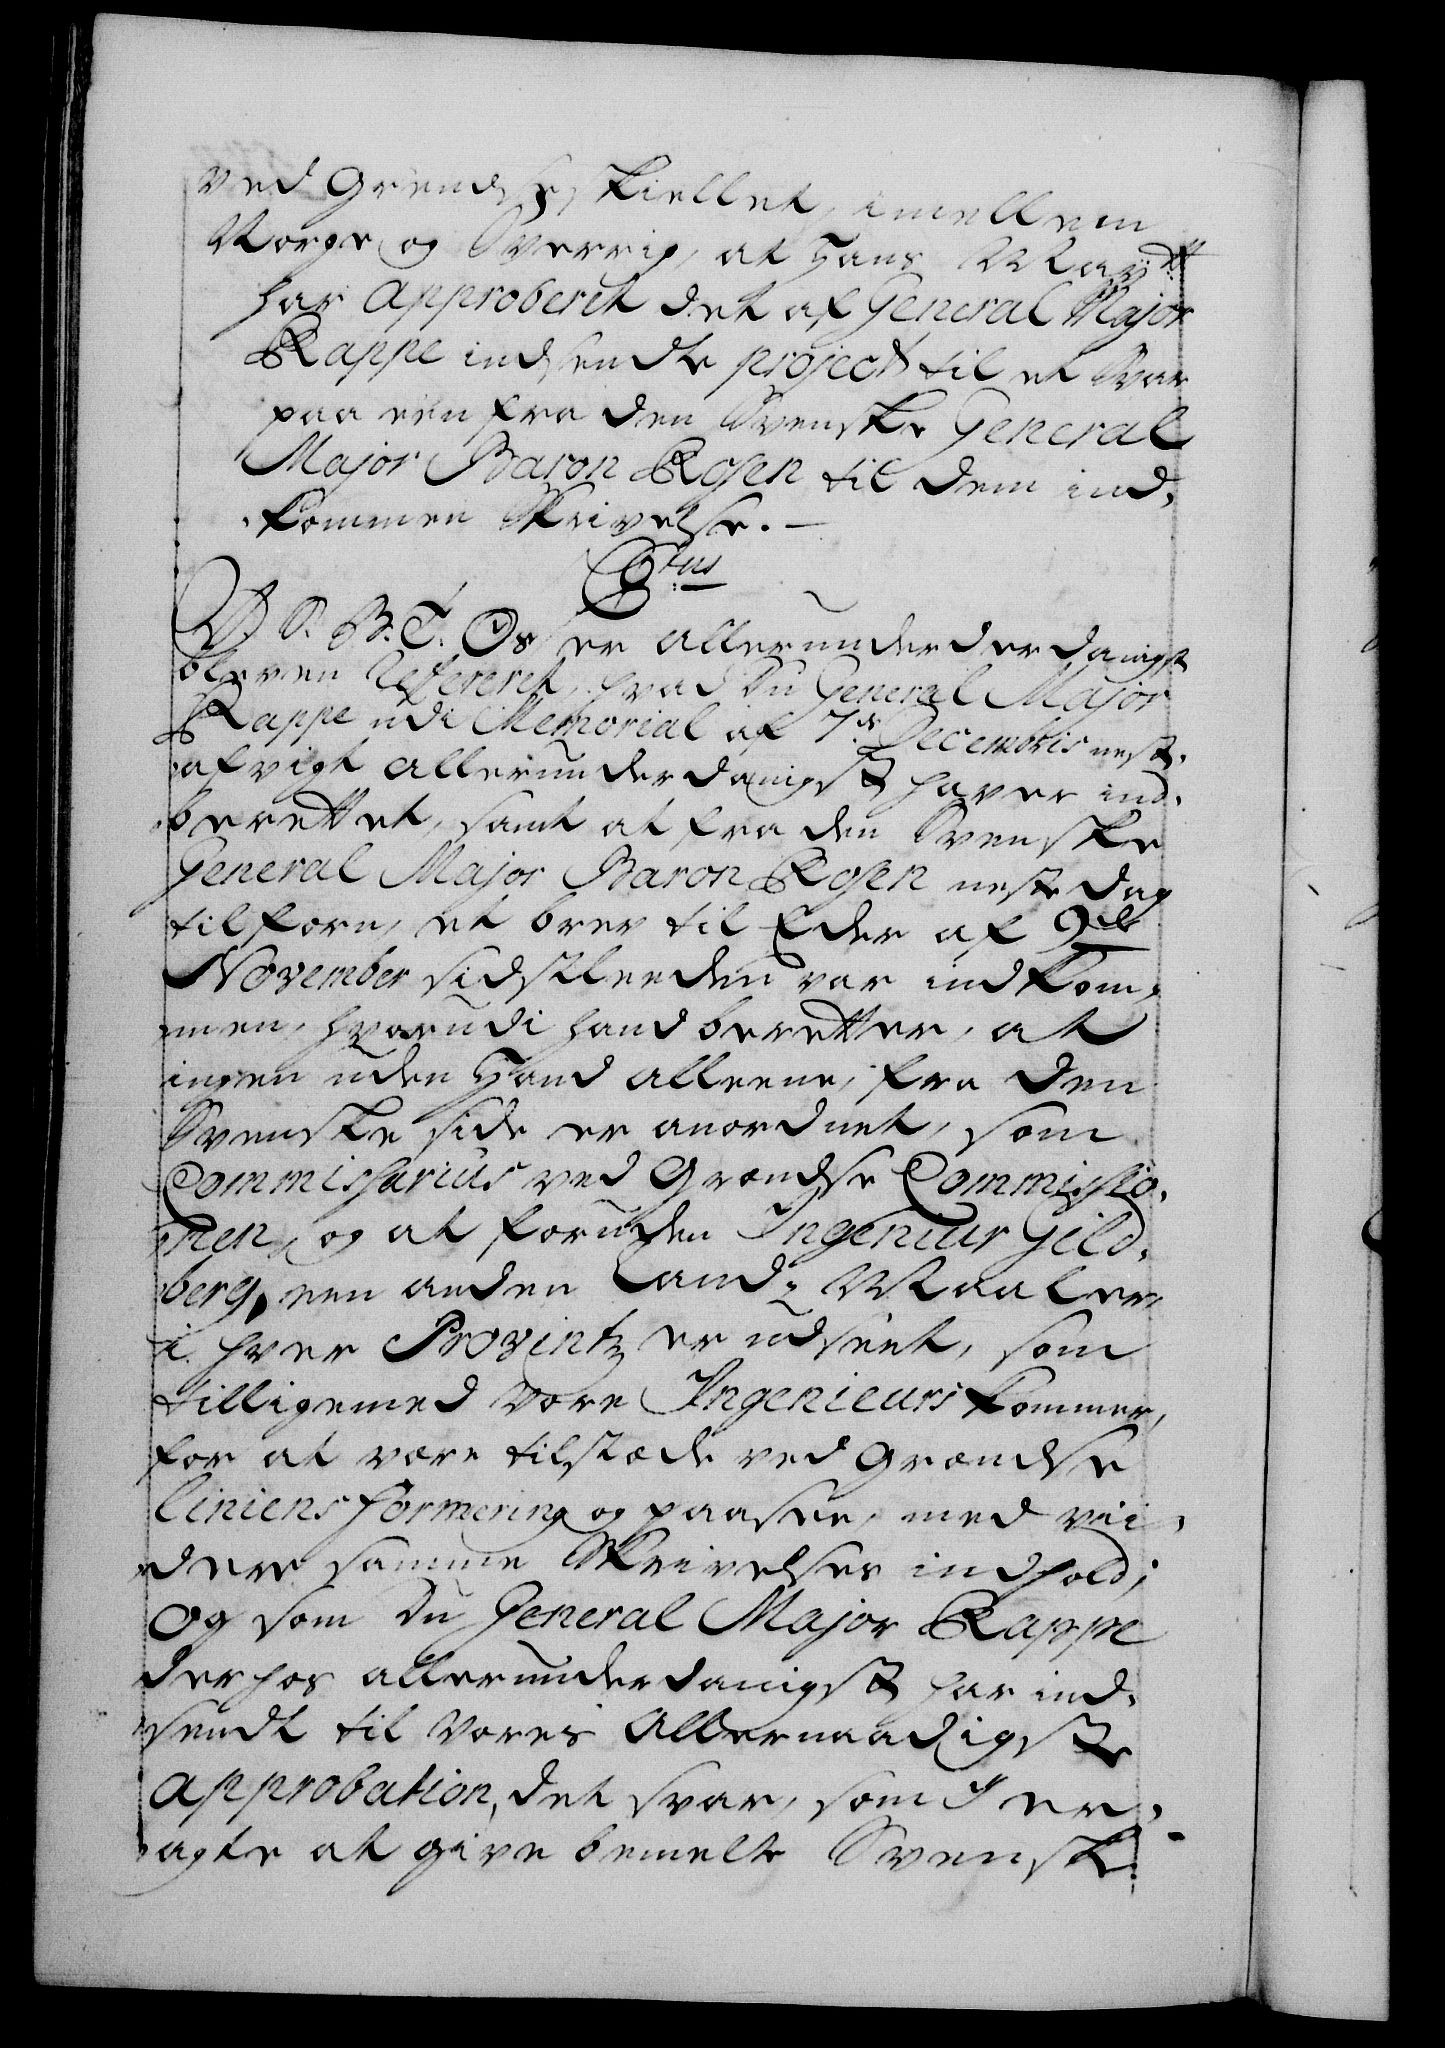 ved Grendse skiellet, imellem
Norge og Sverrig, at Hans Mayt
har approberet det af General Major
Rappe indsendte project til et Svar
paa een fra den Svenske General
Major Baron Rosen til dem ind-
kommen Skrivelse. —
C 6tus
V. S. B. T. Os er allerunderdanigst
bleven Refereret, hvad Du General Major
Rappe udi Memorial af 7de Decembris nest-
afvigt allerunderdanigst haver ind-
berettet, samt at fra den Svenske
General Major Baron Rosen nest dag
tilforn, et brev til Eder af 9de
November sidstleeden var indkom-
men, hvorudi hand beretter, at
ingen uden Hand alleene, fra den
Svenske side er anordnet, som
Commissarius ved Grændse Commissio-
nen, og at foruden Ingenieur Gild-
berg, een anden Land-Maaler
i hver Provintz er udseet, som
tilligemed vore Ingenieurs kommer,
for at være tilstæde ved Grændse
Liniens formering og paasee, med vii-
dere samme Skrivelses indhold;
Og som Du General Major Rappe
derhos allerunderdanigst har ind-
sendt til Vores Allernaadigste
approbation, det svar, som I er-
agte at give bemelte Svenske